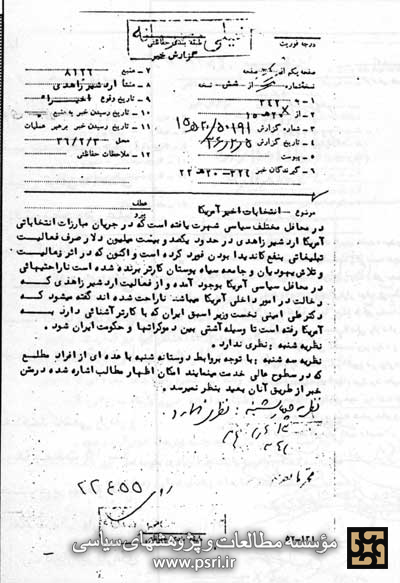 خیلی محرمانه
درجه فوریت
طبقه بندی حفاظتی
گزارش خبر
صفحه یکم از یک صفحه
نسخه شماره از شش نسخه
۱ - به ۳۴۲
۲ - از ۲۰ ه ۱۵
۳ - شماره گزارش ۱۵ ه ۲۰/۵۰۱۹۱
۴ - تاریخ گزارش ۳۶/۲/۵
۵ - پیوست
۶ - گیرندگان خبر ۳۲۶ - ۲۰ ه ۲۲
۷ - منبع ۸۱۲۶
۸ - منشأ اردشیر زاهدی
۹ - تاریخ وقوع اخیراً
۱۰ - تاریخ رسیدن خبر به منبع
۱۱ - تاریخ رسیدن خبر برهبر عملیات
محل ۳۶/۲/۳
۱۲ - ملاحظات حفاظتی
موضوع - انتخابات اخیر آمریکا
عطف
پیرو
در محافل مختلف سیاسی شهرت یافته است که در جریان مبارزات انتخاباتی
آمریکا اردشیر زاهدی در حدود یکصد و بیست میلیون دلار صرف فعالیت
تبلیغاتی بنفع کاندیدا بودن فورد کرده است و اکنون که در اثر فعالیت
و تلاش یهودیان و جامعه سیاه پوستان کارتر برنده شده است ناراحتیهائی
در محافل سیاسی آمریکا بوجود آمده و از فعالیت اردشیر زاهدی که
دخالت در امور داخلی آمریکا میباشد ناراحت شده اند گفته میشود که
دکتر علی امینی نخست وزیر اسبق ایران که با کارتر آشنائی دارد به
آمریکا رفته است تا وسیله آشتی بین دموکراتها و حکومت ایران شود .
نظریه شنبه : نظری ندارد .
نظریه سه شنبه : با توجه بروابط دوستانه شنبه با عده ای از افراد مطلع
که در سطوح عالی خدمت مینمایند امکان اظهار مطالب اشاره شده در متن
خبر از طریق آنان بعید بنظر نمیرسد .
نظریه چهارشنبه : نظری ندارد .
۲۲۴۵۵
۵۲-۱۲۱
مؤسسه مطالعات و پژوهشهای سیاسی
www.psri.ir